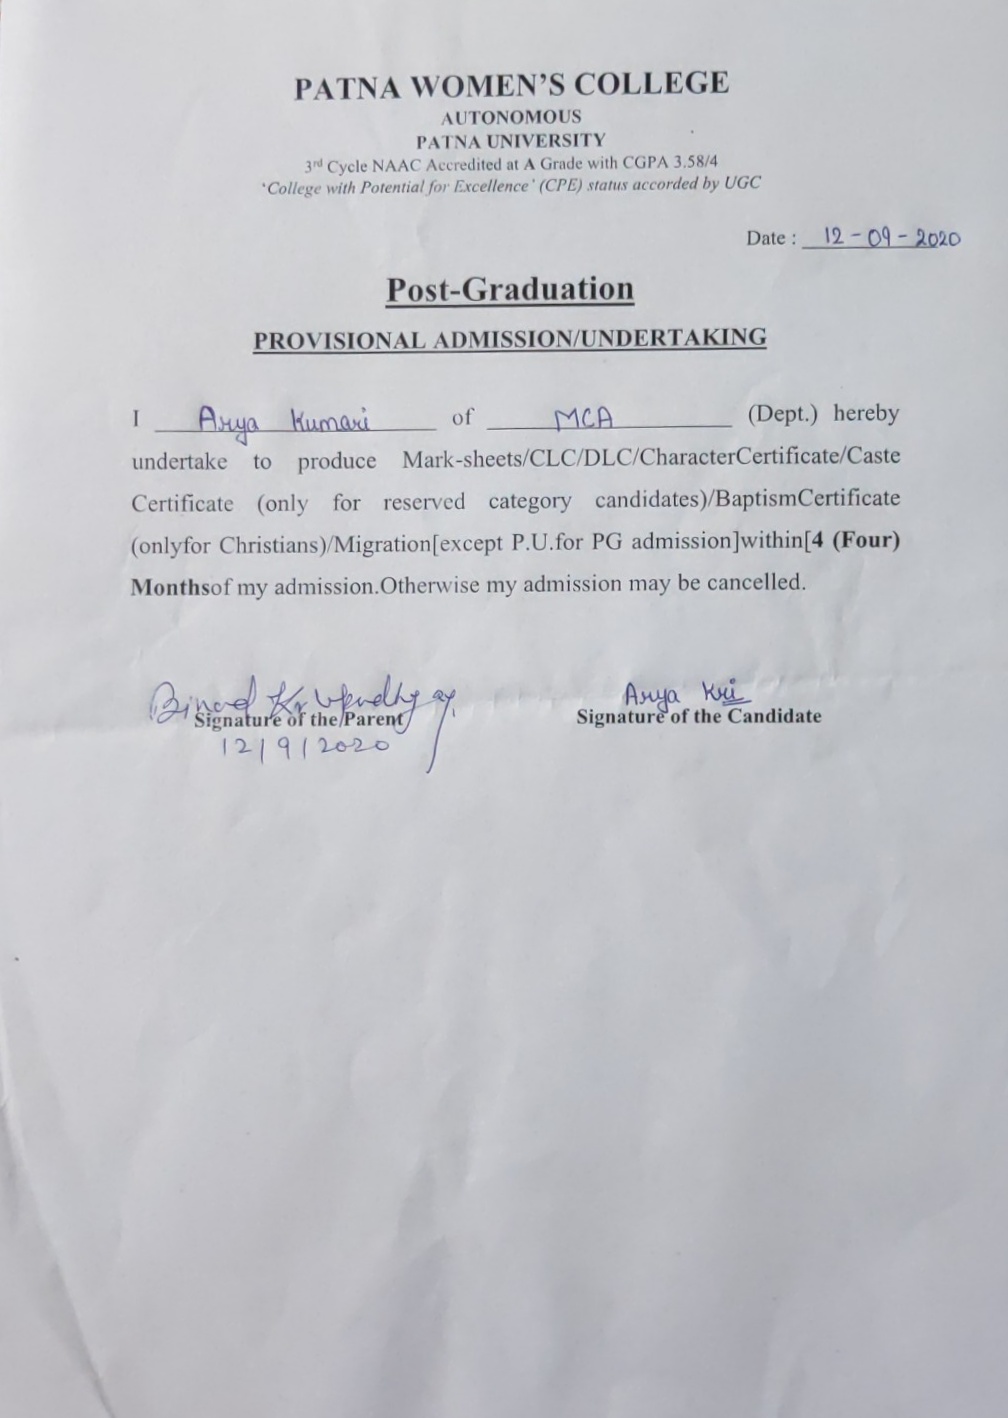 PATNA WOMEN'S COLLEGE
AUTONOMOUS
PATNA UNIVERSITY
3rd Cycle NAAC Accredited at A Grade with CGPA 3.58/4
'College with Potential for Excellence' (CPE) status accorded by UGC
Date : 12-09-2020
Post-Graduation
PROVISIONAL ADMISSION/UNDERTAKING
I Arya Kumari of MCA (Dept.) hereby
undertake to produce Mark-sheets/CLC/DLC/CharacterCertificate/Caste
Certificate (only for reserved category candidates)/BaptismCertificate
(onlyfor Christians)/Migration[except P.U.for PG admission]within[4 (Four)
Monthsof my admission.Otherwise my admission may be cancelled.
Binod Kr Upadhyay. Arya Kri
Signature of the Parent Signature of the Candidate
12/9/2020